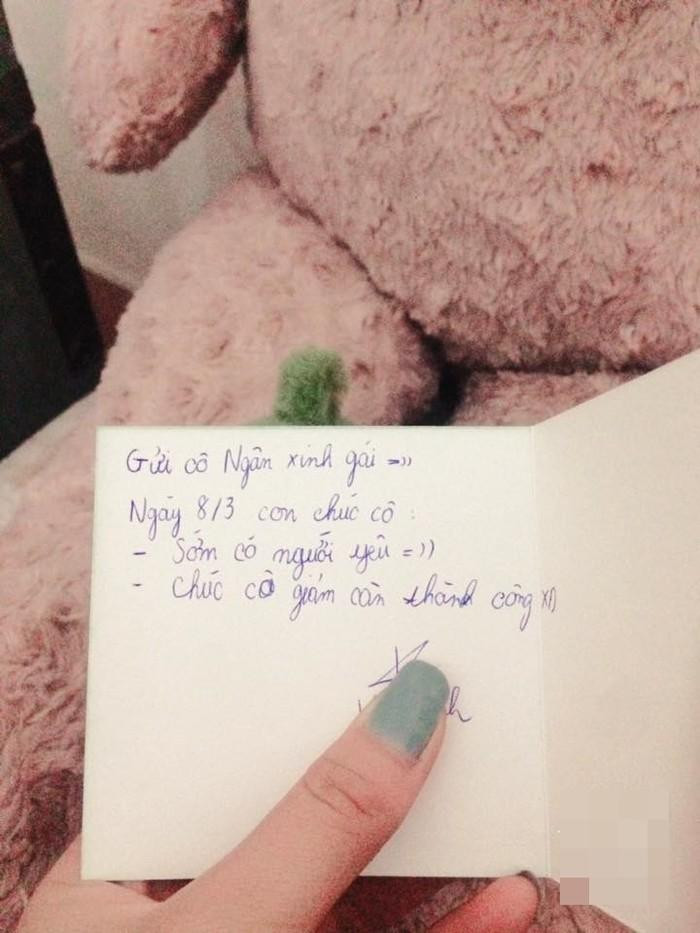 Gửi cô Ngân xinh gái =))
Ngày 8/3 con chúc cô :
- Sớm có người yêu =))
- Chúc cô giảm cân thành công XD